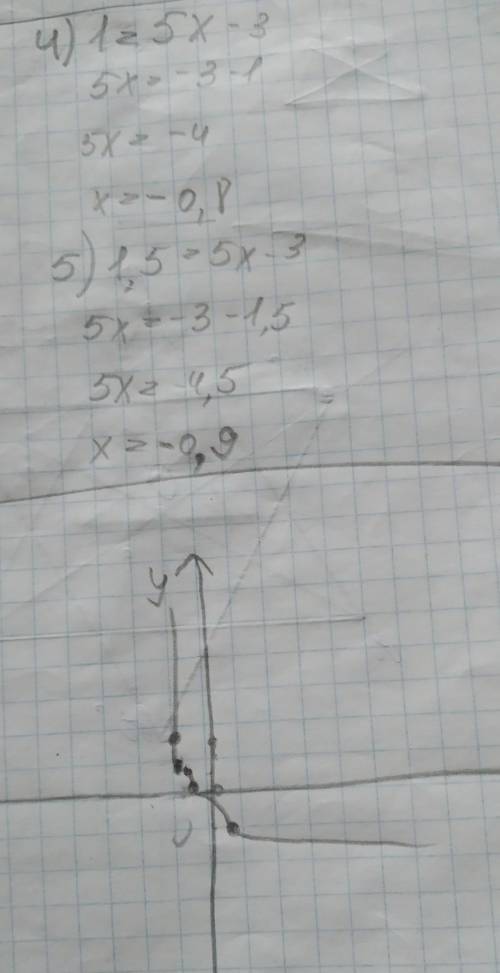 4) 1 = 5x - 3
5x = -3 - 1
5x = -4
x = -0,8
5) 1,5 = 5x - 3
5x = -3 - 1,5
5x = -4,5
x = -0,9
y